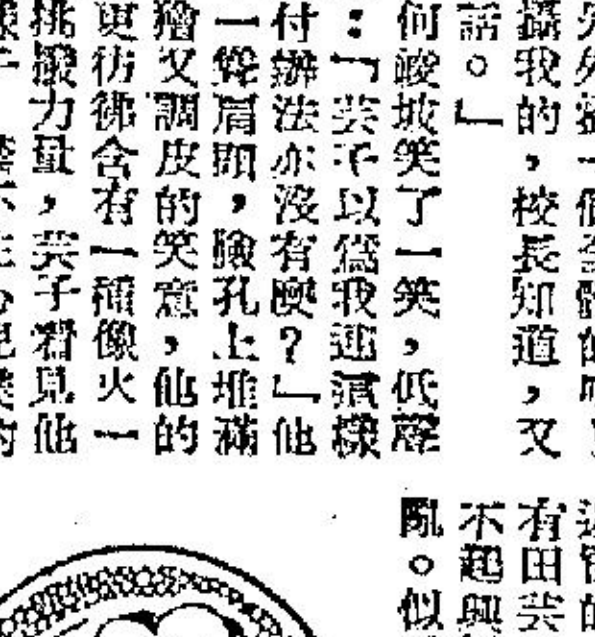 攝我的，校長知道，又
話。」
何峻坡笑了一笑，低聲
：「芸子以爲我連這樣
付辦法亦沒有麽？」他
一聳肩頭，臉孔上堆滿
獪又調皮的笑意，他的
更彷彿含有一種像火一
挑撥力量，芸子看見他
有田芸
不起興
亂。似